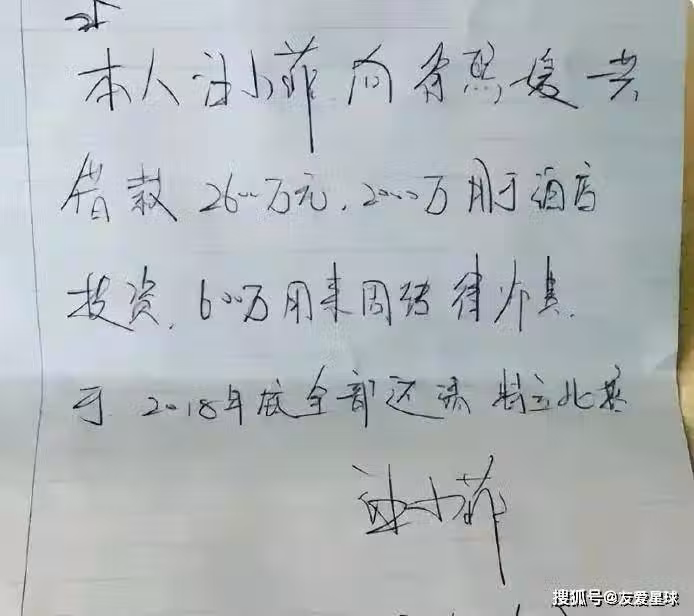 本人汪小菲向徐熙媛共
借款2600万元,2000万用于酒店
投资,600万用来周转律师费.
于2018年底全部还清 特立此据
汪小菲
搜狐号@友爱星球